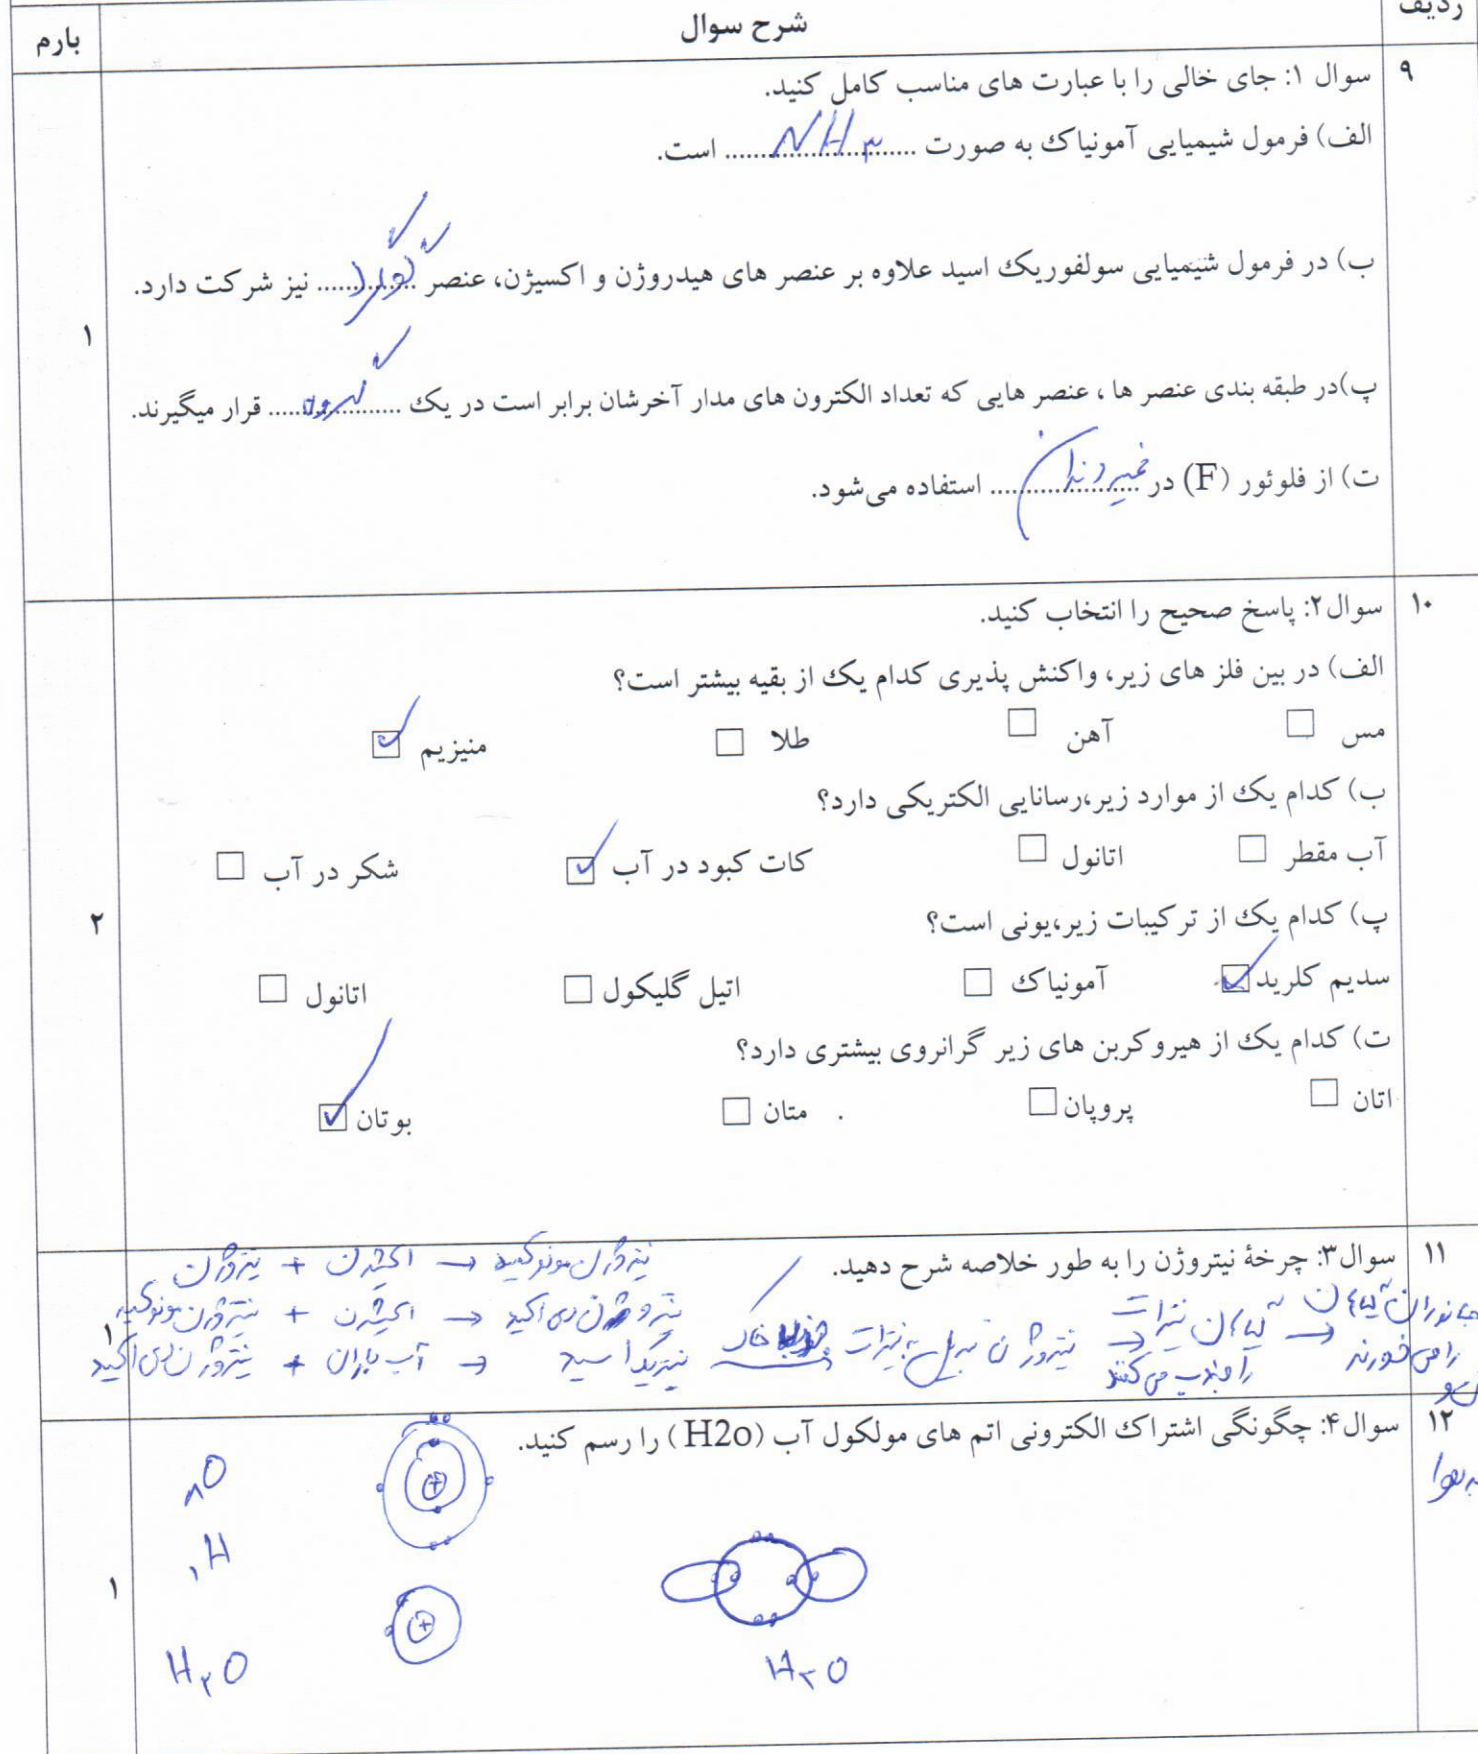 ردیف
شرح سوال
بارم
۹
سوال ۱: جای خالی را با عبارت های مناسب کامل کنید.
الف) فرمول شیمیایی آمونیاک به صورت ......NH۳...... است.
ب) در فرمول شیمیایی سولفوریک اسید علاوه بر عنصر های هیدروژن و اکسیژن، عنصر ...گوگرد... نیز شرکت دارد.
۱
پ)در طبقه بندی عنصر ها ، عنصر هایی که تعداد الکترون های مدار آخرشان برابر است در یک ......گروه...... قرار میگیرند.
ت) از فلوئور (F) در ...خمیر دندان... استفاده می‌شود.
۱۰
سوال۲: پاسخ صحیح را انتخاب کنید.
الف) در بین فلز های زیر، واکنش پذیری کدام یک از بقیه بیشتر است؟
مس □ آهن □ طلا □ منیزیم ☑
ب) کدام یک از موارد زیر،رسانایی الکتریکی دارد؟
آب مقطر □ اتانول □ کات کبود در آب ☑ شکر در آب □
۲
پ) کدام یک از ترکیبات زیر،یونی است؟
سدیم کلرید ☑ آمونیاک □ اتیل گلیکول □ اتانول □
ت) کدام یک از هیروکربن های زیر گرانروی بیشتری دارد؟
اتان □ پروپان □ . متان □ بوتان ☑
۱۱
سوال۳: چرخهٔ نیتروژن را به طور خلاصه شرح دهید.
نیتروژن + اکسیژن → نیتروژن مونوکسید
نیتروژن مونوکسید + اکسیژن → نیتروژن دی اکسید
نیتروژن دی اکسید + آب باران → نیتریک اسید
خاک نیتروژن تبدیل به نیترات → گیاهان نیترات را جذب می کنند → جانوران گیاهان را می خورند
به هوا
۱
۱۲
سوال۴: چگونگی اشتراک الکترونی اتم های مولکول آب (H2o) را رسم کنید.
۸O
+
۱H
+
۱
H۲O
H۲O